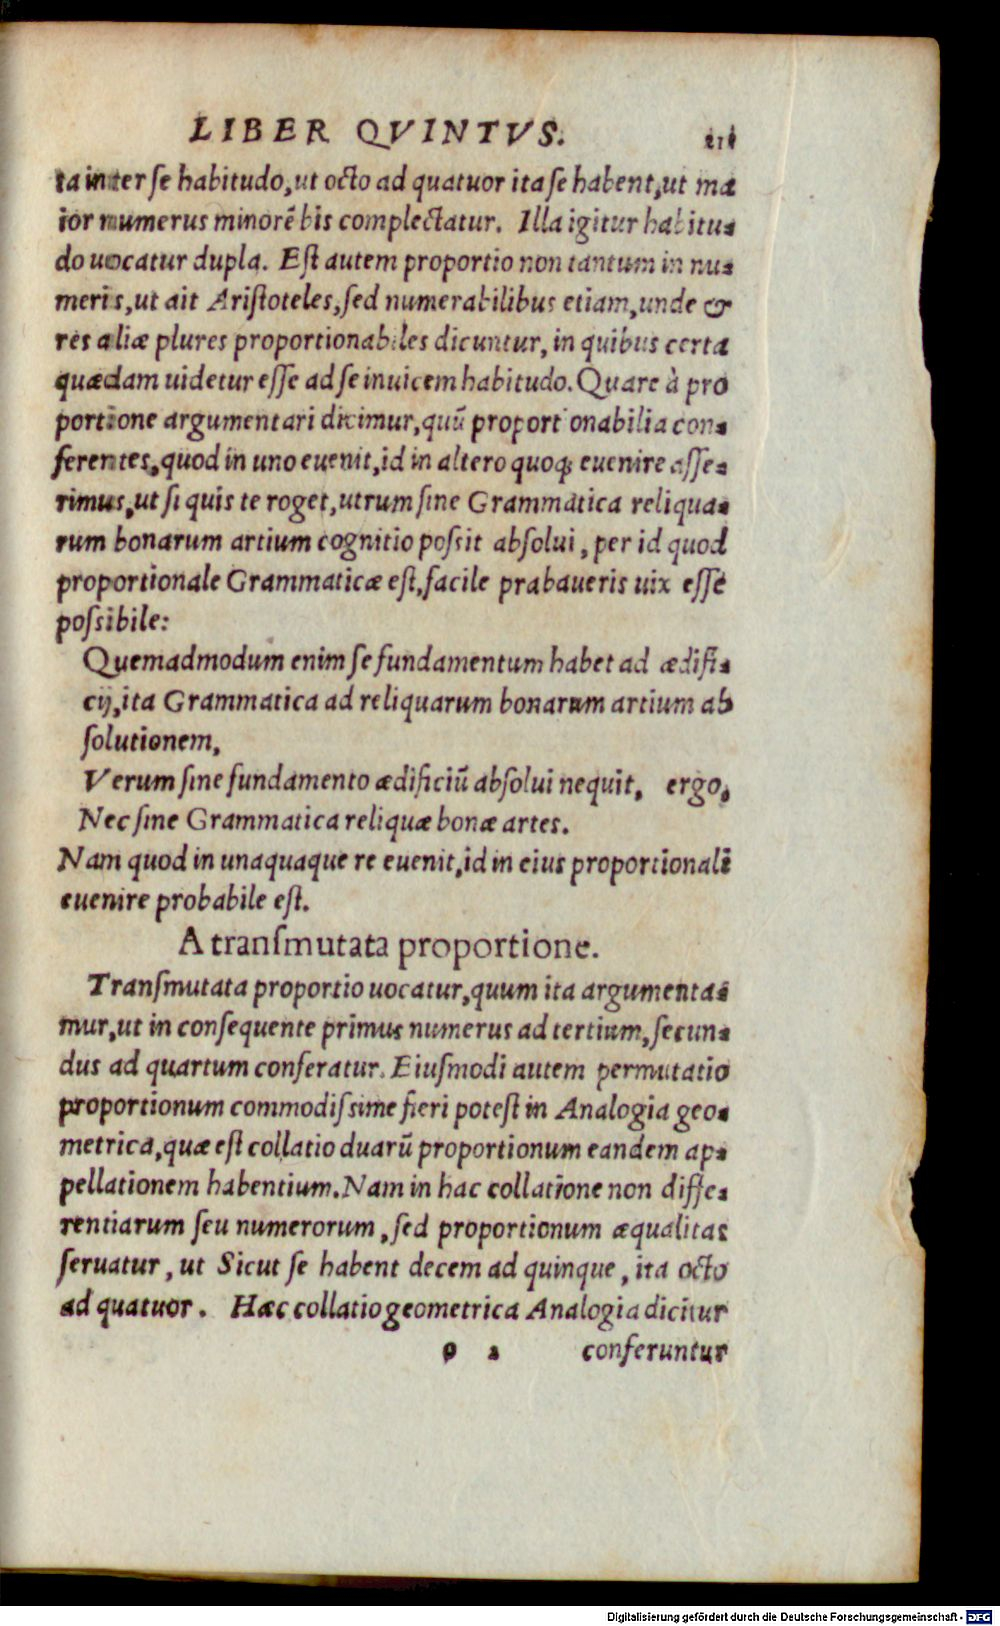 LIBER QVINTVS. 211
ta inter se habitudo, ut octo ad quatuor ita se habent, ut ma
ior numerus minorē bis complectatur. Illa igitur habitu-
do uocatur dupla. Est autem proportio non tantum in nu-
meris, ut ait Aristoteles, sed numerabilibus etiam, unde &
res aliæ plures proportionabiles dicuntur, in quibus certa
quædam uidetur esse ad se inuicem habitudo. Quare à pro
portione argumentari dicimur, quū proportionabilia con-
ferentes, quod in uno euenit, id in altero quoq; euenire asse-
rimus, ut si quis te roget, utrum sine Grammatica reliqua-
rum bonarum artium cognitio possit absolui, per id quod
proportionale Grammaticæ est, facile prabaueris uix esse
possibile:
Quemadmodum enim se fundamentum habet ad ædifi-
cij, ita Grammatica ad reliquarum bonarum artium ab
solutionem,
Verum sine fundamento ædificiū absolui nequit, ergo,
Nec sine Grammatica reliquæ bonæ artes.
Nam quod in unaquaque re euenit, id in eius proportionali
euenire probabile est.
A transmutata proportione.
Transmutata proportio uocatur, quum ita argumenta-
mur, ut in consequente primus numerus ad tertium, secun-
dus ad quartum conferatur. Eiusmodi autem permutatio
proportionum commodissime fieri potest in Analogia geo-
metrica, quæ est collatio duarū proportionum eandem ap-
pellationem habentium. Nam in hac collatione non diffe-
rentiarum seu numerorum, sed proportionum æqualitas
seruatur, ut Sicut se habent decem ad quinque, ita octo
ad quatuor. Hæc collatio geometrica Analogia dicitur
o 2 conferuntur
Digitalisierung gefördert durch die Deutsche Forschungsgemeinschaft - DFG